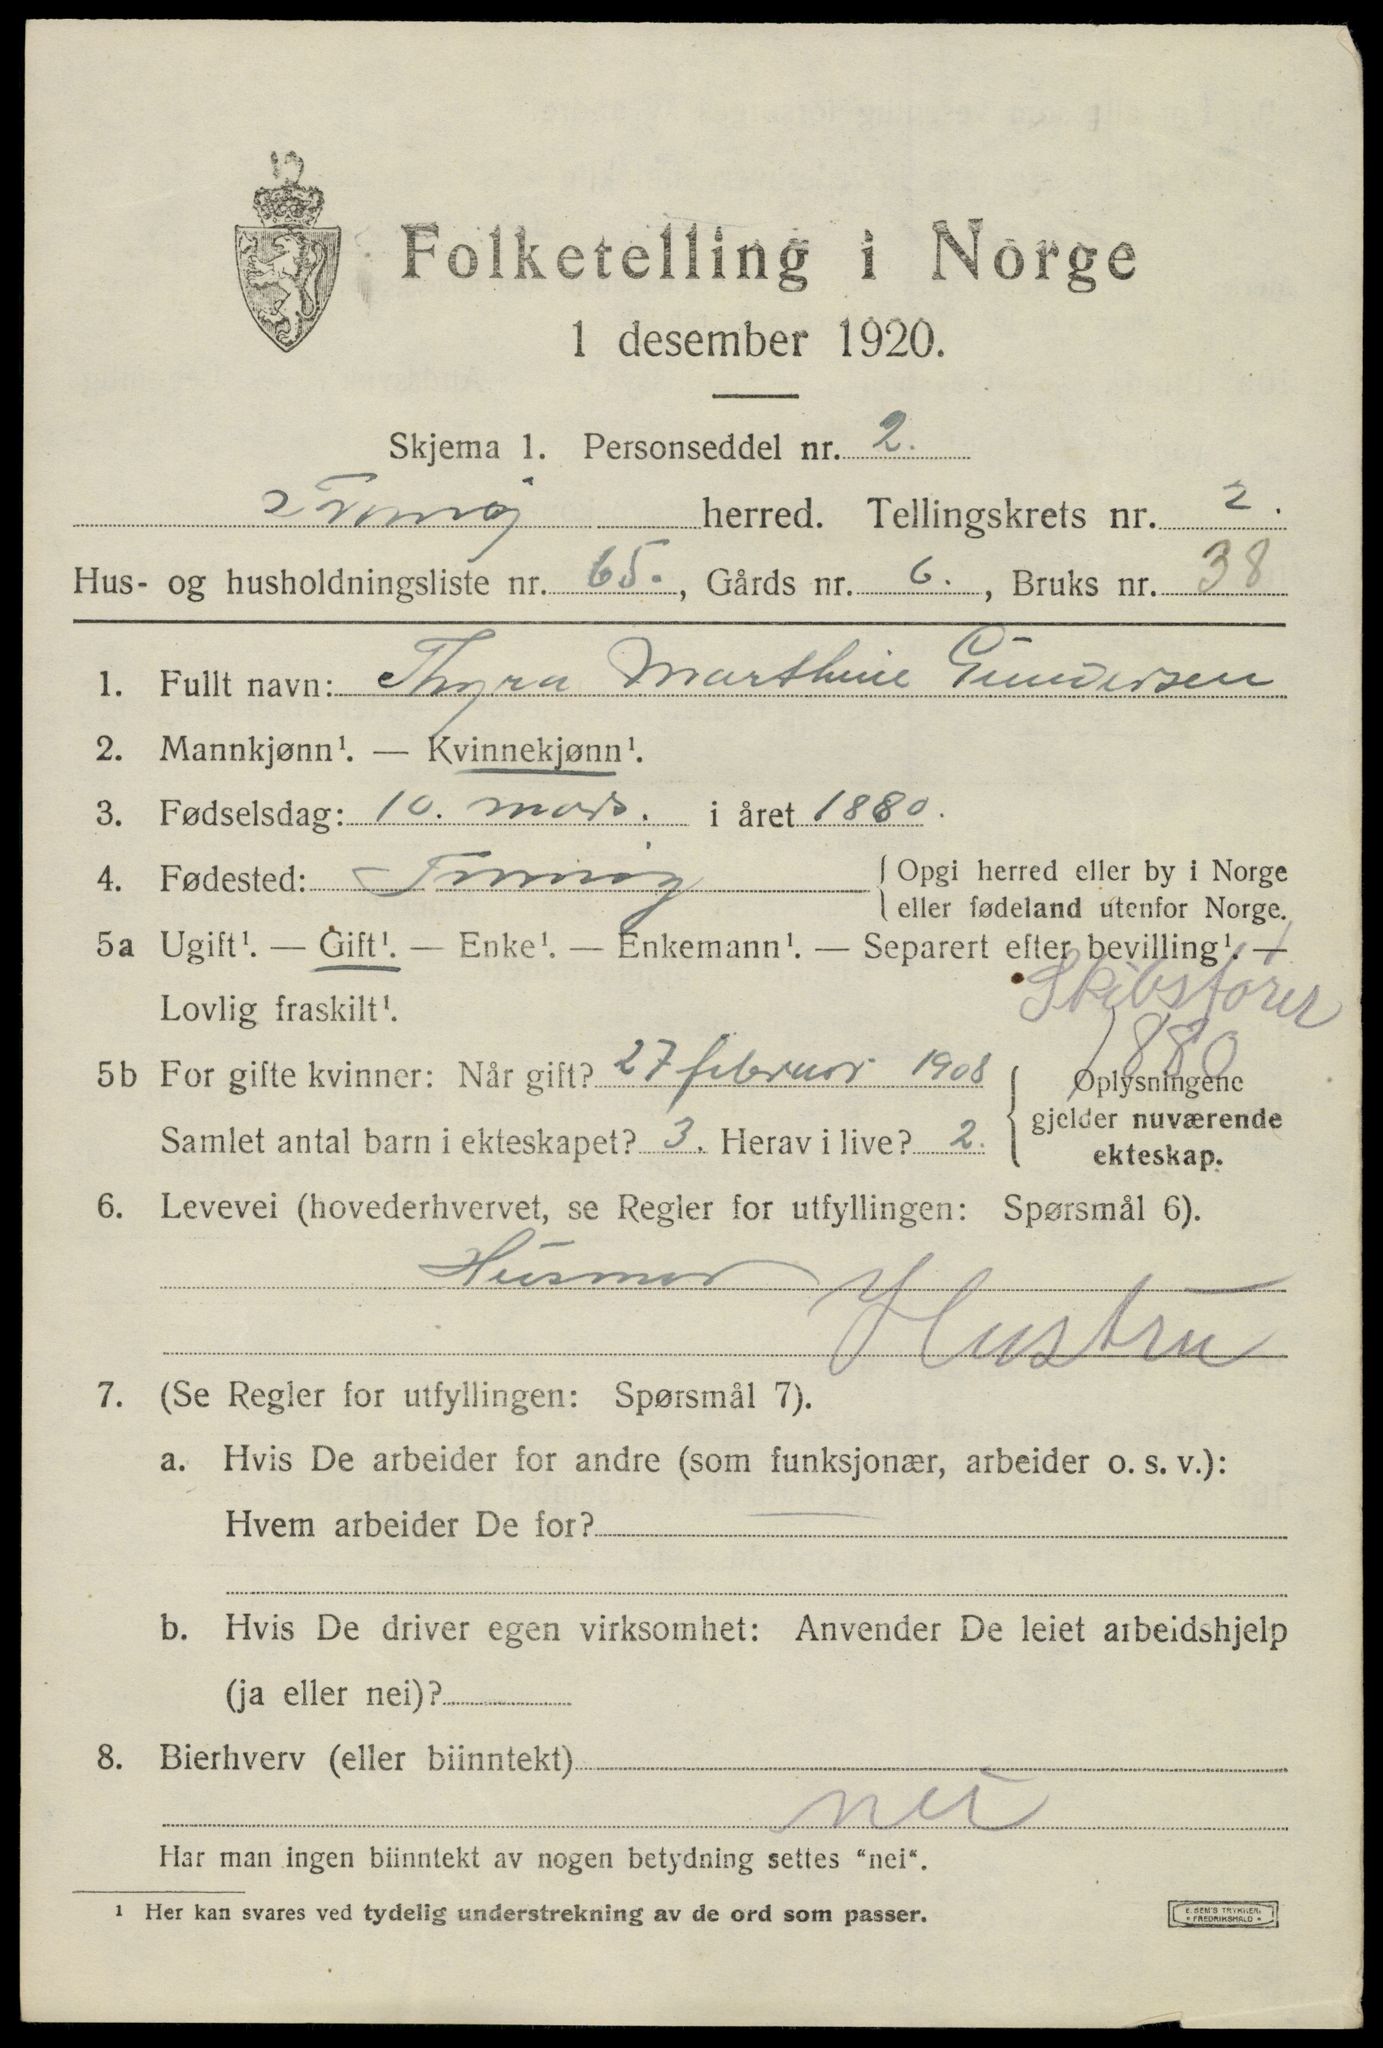 Folketelling i Norge
1 desember 1920.
Skjema 1. Personseddel nr. 2.
Tromøy herred. Tellingskrets nr. 2.
Hus- og husholdningsliste nr. 65., Gårds nr. 6., Bruks nr. 38
1. Fullt navn: Thyra Marthine Gundersen
2. Mannkjønn¹. — Kvinnekjønn¹.
3. Fødselsdag: 10. mars. i året 1880.
4. Fødested: Tromøy { Opgi herred eller by i Norge
eller fødeland utenfor Norge.
5a Ugift¹. — Gift¹. — Enke¹. — Enkemann¹. — Separert efter bevilling¹. —
Skibsfører
Lovlig fraskilt¹.
1880
5b For gifte kvinner: Når gift? 27 februar 1908 { Oplysningene
gjelder nuværende
Samlet antal barn i ekteskapet? 3. Herav i live? 2.
ekteskap.
6. Levevei (hovederhvervet, se Regler for utfyllingen: Spørsmål 6).
Husmor
Hustru
7. (Se Regler for utfyllingen: Spørsmål 7).
a. Hvis De arbeider for andre (som funksjonær, arbeider o. s. v.):
Hvem arbeider De for?
b. Hvis De driver egen virksomhet: Anvender De leiet arbeidshjelp
(ja eller nei)?
8. Bierhverv (eller biinntekt)
nei
Har man ingen biinntekt av nogen betydning settes "nei".
¹ Her kan svares ved tydelig understrekning av de ord som passer.
E. SEM'S TRYKKERI,
FREDRIKSHALD